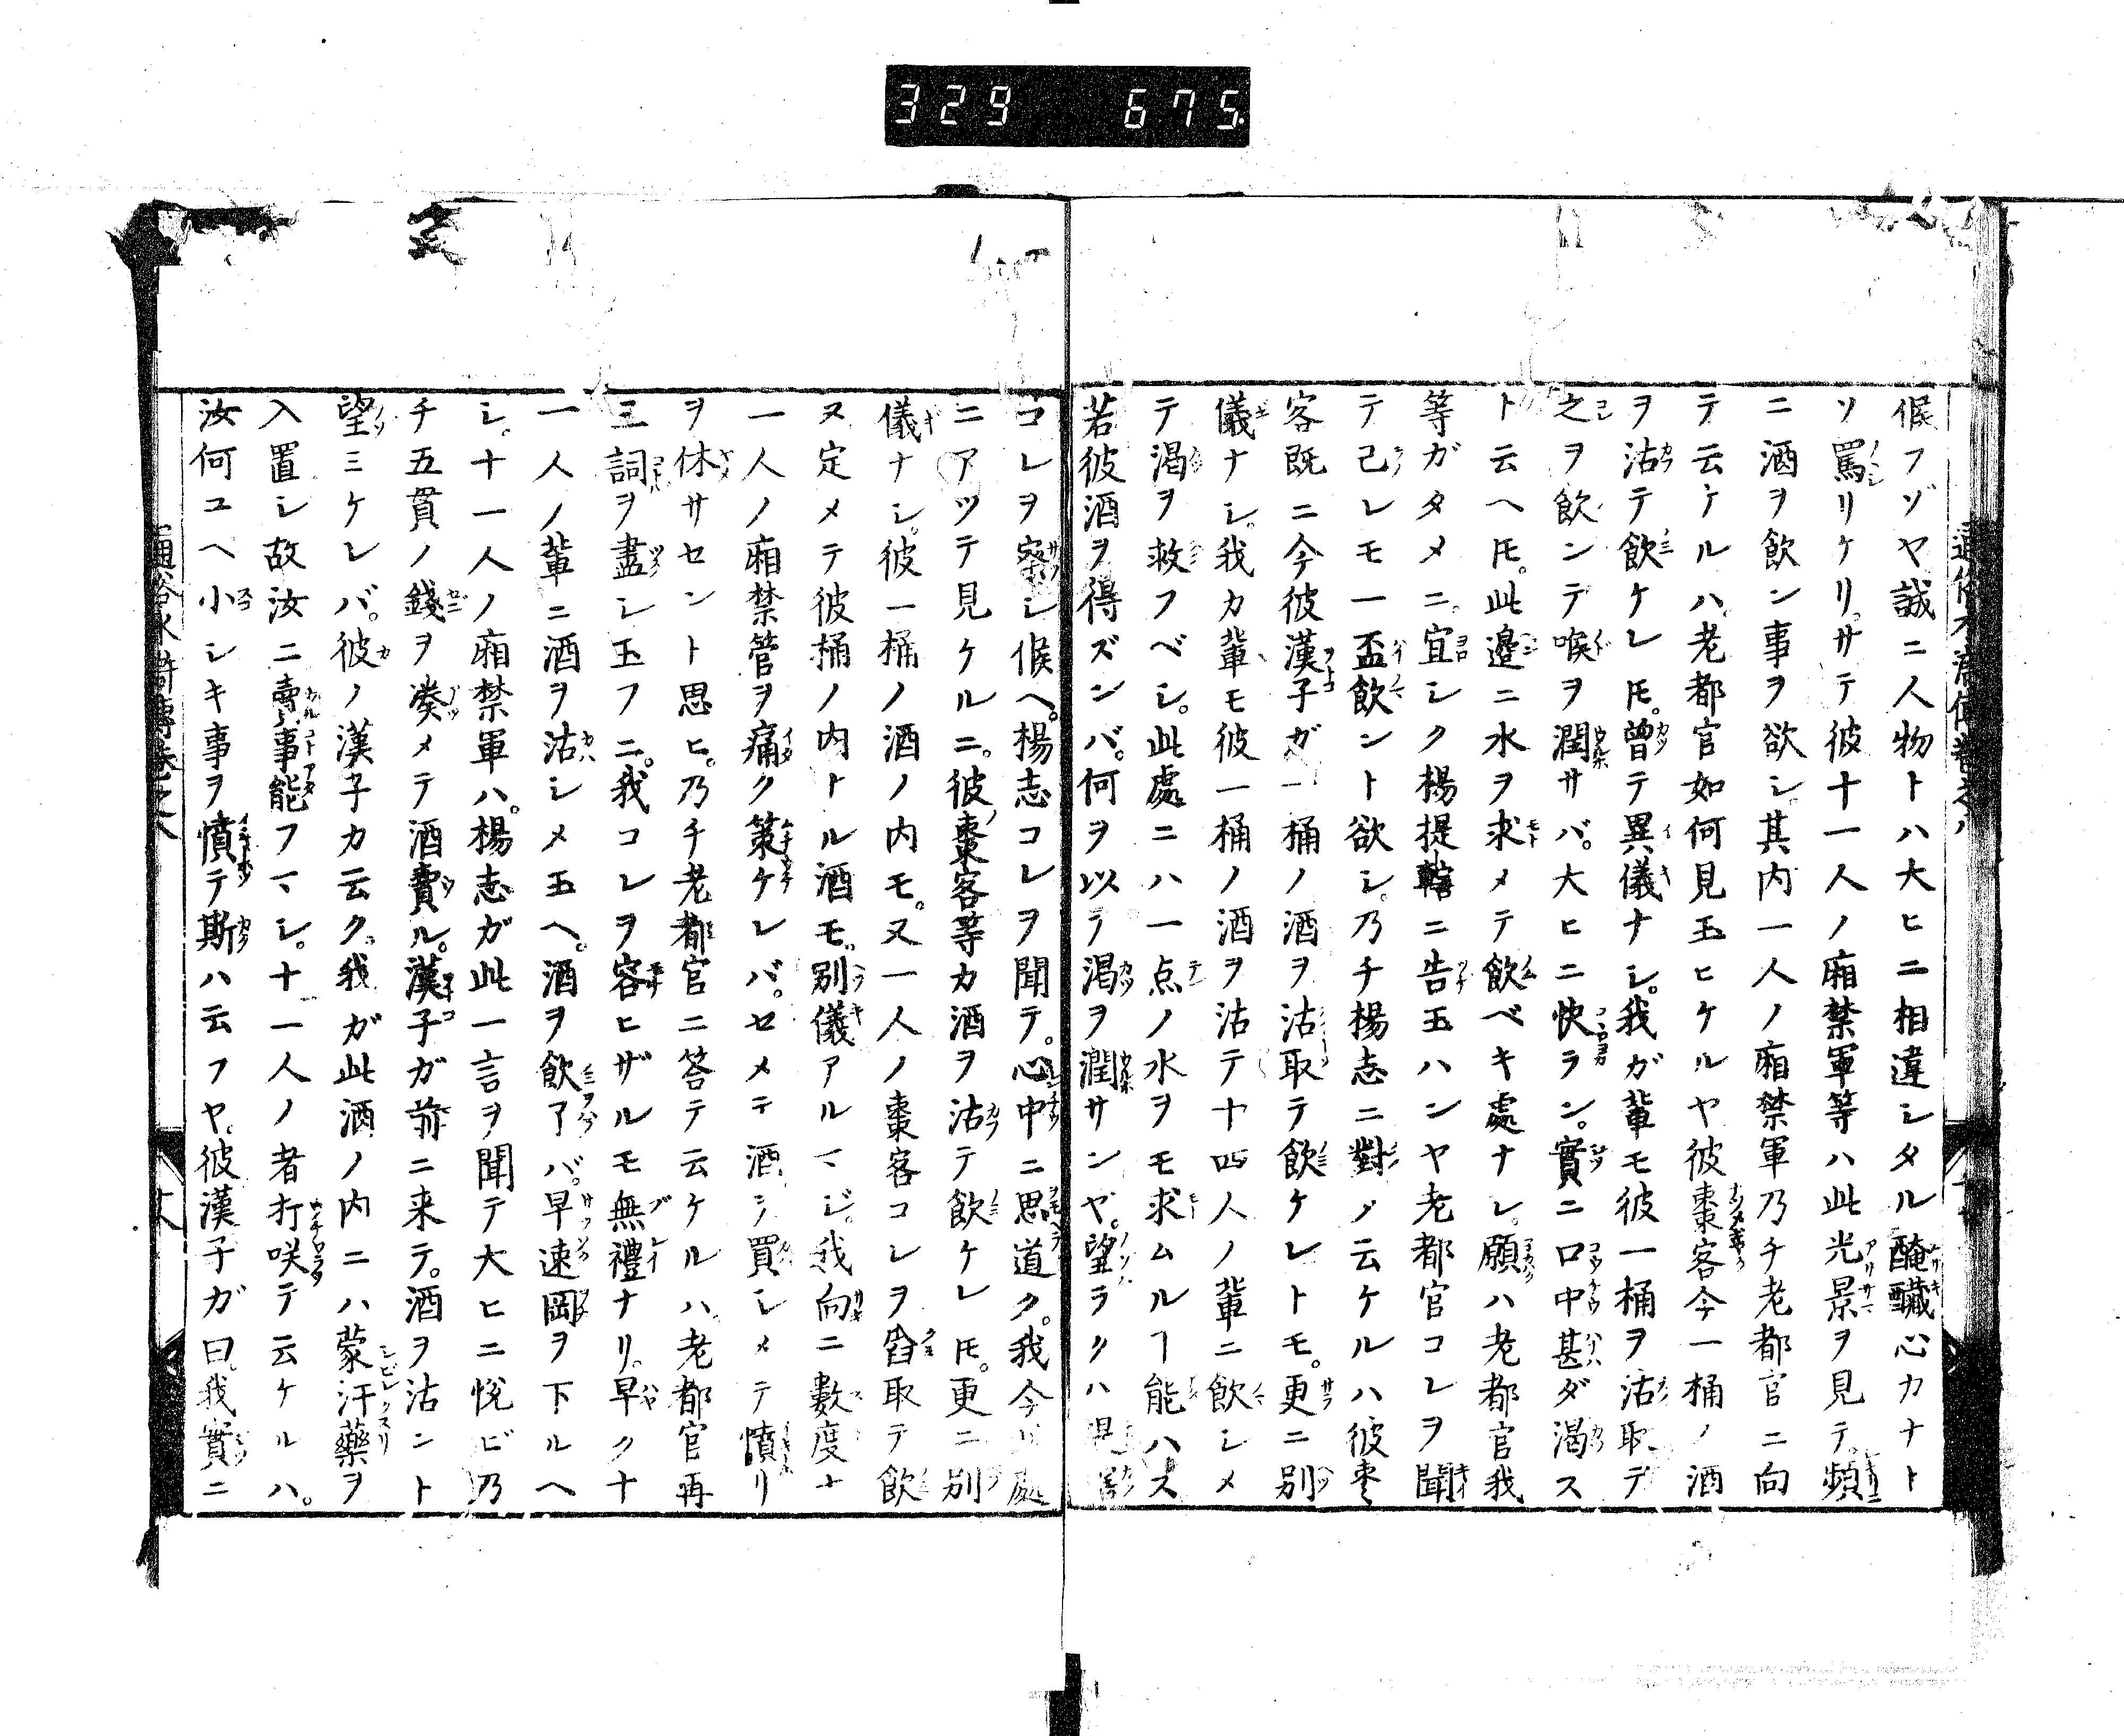 329 675
候フゾヤ誠ニ人物トハ大ヒニ相違シタル醃臢心カナト
ソ罵リケリ。サテ彼十一人ノ廂禁軍等ハ此光景ヲ見テ頻
ニ酒ヲ飲ン事ヲ欲シ。其内一人ノ廂禁軍乃チ老都官ニ向
テ云ケルハ。老都官如何見玉ヒケルヤ彼棗客今一桶ノ酒
ヲ沽テ飲ケレ𪜈。曽テ異儀ナシ。我ガ輩モ彼一桶ヲ沽取テ
之ヲ飲ンテ喉ヲ潤サバ。大ヒニ快ラン。實ニ口中甚ダ渇ス
ト云ヘ𪜈。此邉ニ水ヲ求メテ飲ベキ處ナレ。願ハ老都官我
等ガタメニ。宜シク楊提轄ニ告玉ハンヤ老都官コレヲ聞
テ己レモ一盃飲ント欲シ。乃チ楊志ニ對ノ云ケルハ彼棗
客既ニ今彼漢子ガ一桶ノ酒ヲ沽取テ飲ケレトモ。更ニ別
儀ナシ。我カ輩モ彼一桶ノ酒ヲ沽テ十四人ノ輩ニ飲シメ
テ渇ヲ救フベシ。此處ニハ一点ノ水ヲモ求ムルヿ能ハス
若彼酒ヲ得ズンバ。何ヲ以テ渇ヲ潤サンヤ。望ラクハ早
コレヲ察シ候ヘ。楊志コレヲ聞テ。心中ニ思道ク。我今此處
ニアツテ見ケルニ。彼棗客等カ酒ヲ沽テ飲ケレ𪜈。更ニ別
儀ナシ。彼一桶ノ酒ノ内モ。又一人ノ棗客コレヲ舀取テ飲
ヌ定メテ彼桶ノ内トル酒モ。別儀アルマジ。我向ニ數度十
一人ノ廂禁管ヲ痛ク策ケレバ。セメテ酒ヲ買シメテ憤リ
ヲ休サセント思ヒ。乃チ老都官ニ答テ云ケルハ。老都官再
三詞ヲ盡シ玉フニ。我コレヲ容ヒザルモ無禮ナリ。早クナ
一人ノ輩ニ酒ヲ沽シメ玉ヘ。酒ヲ飲了バ。早速岡ヲ下ルヘ
シ。十一人ノ廂禁軍ハ。楊志ガ此一言ヲ聞テ大ヒニ悦ビ乃
チ五貫ノ錢ヲ湊メテ酒費ル。漢子ガ前ニ来テ。酒ヲ沽ント
望ミケレバ。彼ノ漢子カ云ク。我ガ此酒ノ内ニハ蒙汗藥ヲ
入置シ故汝ニ賣事能フマシ。十一人ノ者打咲テ云ケルハ。
汝何ユヘ小シキ事ヲ憤テ斯ハ云フヤ。彼漢子ガ曰。我實ニ
通俗水滸傳巻之八